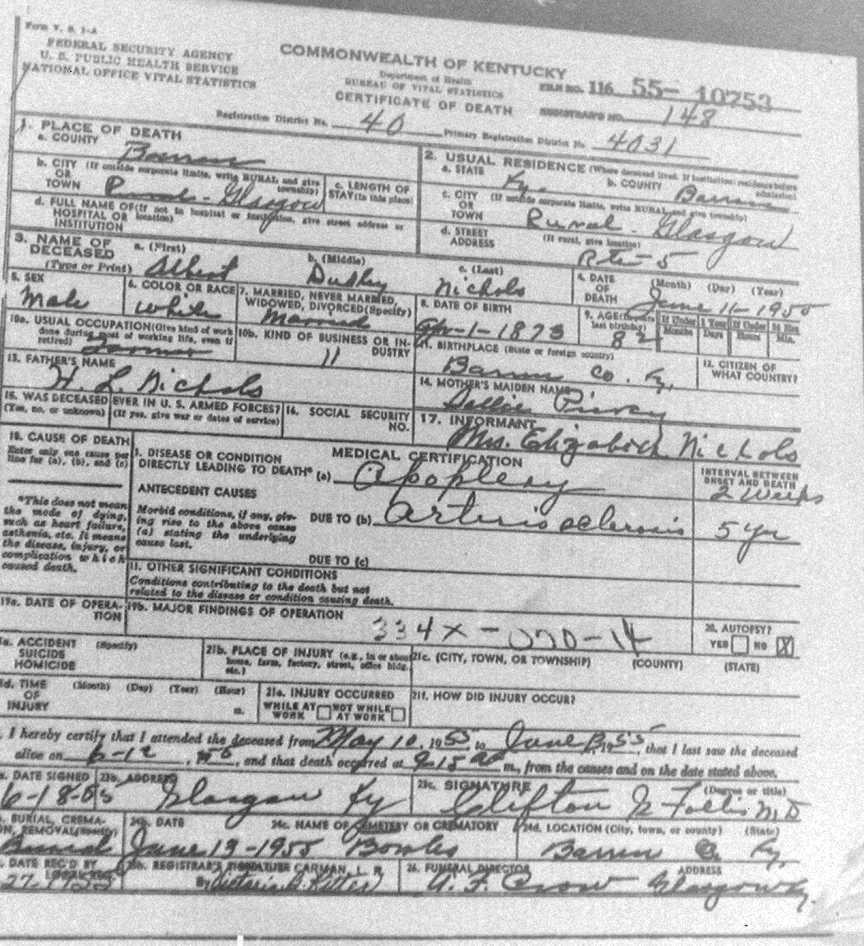 Form V. S. 1-A
FEDERAL SECURITY AGENCY
U. S. PUBLIC HEALTH SERVICE
NATIONAL OFFICE VITAL STATISTICS
COMMONWEALTH OF KENTUCKY
Department of Health
BUREAU OF VITAL STATISTICS
CERTIFICATE OF DEATH
FILE NO. 116 55- 10753
REGISTRAR'S NO. 148
Registration District No. 40 Primary Registration District No. 4031
1. PLACE OF DEATH
a. COUNTY Barren
b. CITY (If outside corporate limits, write RURAL and give township)
OR
TOWN Rural - Glasgow
c. LENGTH OF STAY (in this place)
d. FULL NAME OF (If not in hospital or institution, give street address or location)
HOSPITAL OR
INSTITUTION
2. USUAL RESIDENCE (Where deceased lived. If institution: residence before admission)
a. STATE Ky. b. COUNTY Barren
c. CITY (If outside corporate limits, write RURAL and give township)
OR
TOWN Rural - Glasgow
d. STREET ADDRESS (If rural, give location) Rte-5
3. NAME OF DECEASED (Type or Print)
a. (First) Albert b. (Middle) Dudley c. (Last) Nichols
4. DATE OF DEATH (Month) (Day) (Year) June 11-1955
5. SEX Male
6. COLOR OR RACE White
7. MARRIED, NEVER MARRIED, WIDOWED, DIVORCED (Specify) Married
8. DATE OF BIRTH -1-1873
9. AGE (In years last birthday) 82 If Under 1 Year Months Days If Under 24 Hrs. Hours Min.
10a. USUAL OCCUPATION (Give kind of work done during most of working life, even if retired) Farmer
10b. KIND OF BUSINESS OR INDUSTRY 11
11. BIRTHPLACE (State or foreign country) Barren Co. Ky.
12. CITIZEN OF WHAT COUNTRY?
13. FATHER'S NAME H. L. Nichols
14. MOTHER'S MAIDEN NAME
15. WAS DECEASED EVER IN U. S. ARMED FORCES?
(Yes, no, or unknown) (If yes, give war or dates of service)
16. SOCIAL SECURITY NO.
17. INFORMANT Mrs. Elizabeth Nichols
18. CAUSE OF DEATH
Enter only one cause per line for (a), (b), and (c)
*This does not mean the mode of dying, such as heart failure, asthenia, etc. It means the disease, injury, or complication which caused death.
MEDICAL CERTIFICATION
INTERVAL BETWEEN ONSET AND DEATH
I. DISEASE OR CONDITION DIRECTLY LEADING TO DEATH* (a) Apoplexy 2 Weeks
ANTECEDENT CAUSES
Morbid conditions, if any, giving rise to the above cause (a) stating the underlying cause last.
DUE TO (b) Arteriosclerosis 5 yr
DUE TO (c)
11. OTHER SIGNIFICANT CONDITIONS
Conditions contributing to the death but not related to the disease or condition causing death.
19a. DATE OF OPERATION
19b. MAJOR FINDINGS OF OPERATION
334X - 070-14
20. AUTOPSY?
YES NO X
21a. ACCIDENT SUICIDE HOMICIDE (Specify)
21b. PLACE OF INJURY (e.g., in or about home, farm, factory, street, office bldg. etc.)
21c. (CITY, TOWN, OR TOWNSHIP) (COUNTY) (STATE)
21d. TIME OF INJURY (Month) (Day) (Year) (Hour) m.
21e. INJURY OCCURRED
WHILE AT WORK NOT WHILE AT WORK
21f. HOW DID INJURY OCCUR?
I hereby certify that I attended the deceased from May 10, 1955 to June , 1955, that I last saw the deceased
alive on 6-12, , and that death occurred at 9:15 m., from the causes and on the date stated above.
23a. DATE SIGNED 6-18-55
23b. ADDRESS Glasgow Ky
23c. SIGNATURE (Degree or title) Clifton M D
BURIAL, CREMATION, REMOVAL (Specify) Burial
24b. DATE June 13-1955
24c. NAME OF CEMETERY OR CREMATORY Bowles
24d. LOCATION (City, town, or county) (State) Barren Co Ky.
DATE REC'D BY LOCAL REG. 27-1955
25b. REGISTRAR'S SIGNATURE CARMAN, L. R.
By
26. FUNERAL DIRECTOR A. F. Crow ADDRESS Glasgow Ky.